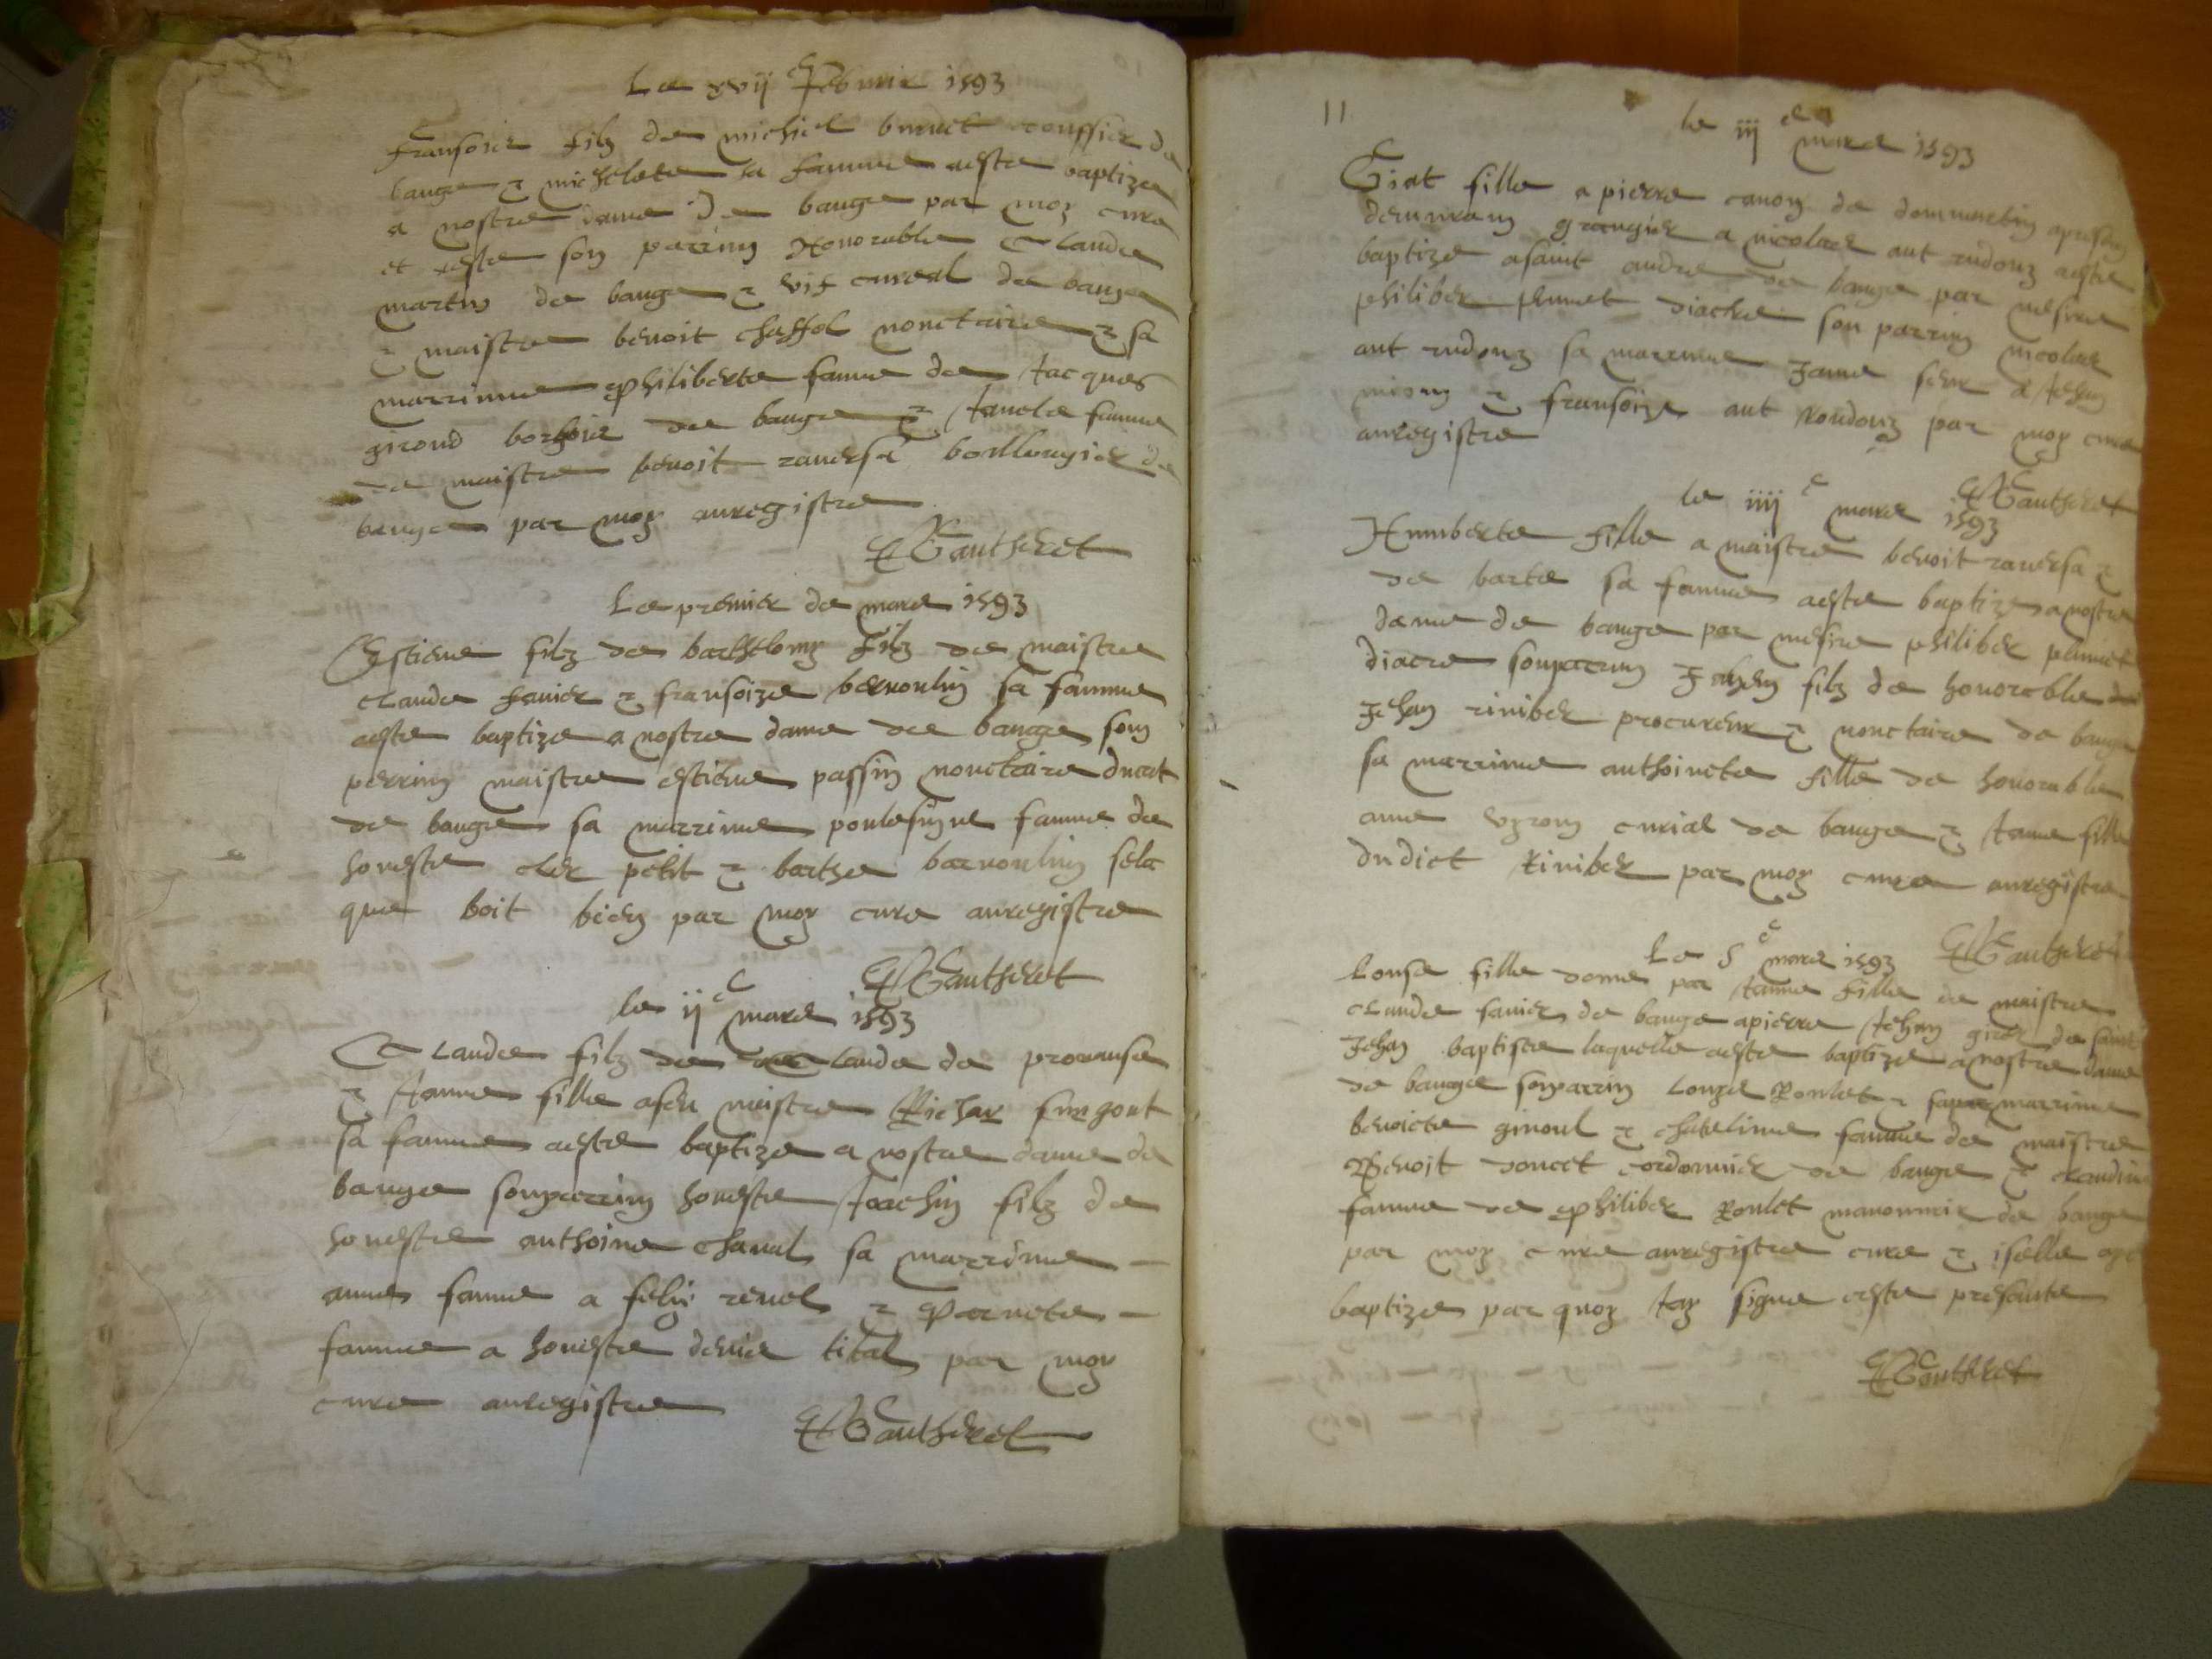 Le xvii e Febvrie 1593
fransois filz de michiel bruuet de
bauge & michelete sa famme aeste baptize
a nostre dame De bauge par moy cure
et aeste son parrin Honorable Claude
martin de bauge & vif cureal de bauge
& maistre benoit chaffol nonctaire & sa
marrinne philiberte famme de Jacques
girond de bauge & Janela famme
de maistre benoit raversa bollongier de
bauge par moy anregistre
Gautheret
Le premier de mars 1593
Estiene filz de barthelomy filz de maistre
claude favier & fransoize bernonlin sa famme
aeste baptize a nostre dame de bauge son
perrin maistre estiene passin nonctaire ducat
de bauge sa marrinne famme de
honeste cler petit & barthe barnonlin sela
que boit bien par moy cure anregistre
Gautheret
le ii e mars 1593
Claude filz de claude de provanse
& Janne fille afeu maistre Richar
sa famme aeste baptize a nostre dame de
bauge sonparrin honeste Joachin filz de
honestre anthoine chanal sa marrinne
anne famme a felix revel & parnete
famme a honeste denie tital par moy
cure anregistre
Gautheret
11
le iij e mars 1593
fille a pierre canon de dommartin apresan
demuran grangier a nicolas aut rudonz aeste
baptize asaint andre de bauge par mesire
philiber plumet diacre son parrin nicolas
aut rudonz sa marrinne Jame seur a Jehan
miony & fransoize aut Rondonz par moy cure
anregistre
Gautheret
le iiij e mars 1593
Humberte fille a maistre benoit raversa &
de barte sa famme aeste baptize a nostre
dame de bauge par mesire philiber plumet
diacre sonparrin Jehan filz de honorable
Jehan riniber procureur & nonctaire de bauge
sa marrinne anthoinete fille de honorable
ame vyrony curial de bauge & Jame fille
dudict Riniber par moy cure anregistre
Gautheret
Le 5 e mars 1593
Louse fille donne par Janne fille de maistre
claude favier de bauge apierre Jehan girer de saint
Jehan baptiste laquelle aeste baptize a nostre dame
de bauge sonparrin Louze Roulet & sa marrinne
benoicte ginoul & chateline famme de maistre
Benoit doncet cordonnier de bauge & claudin
famme de philiber Roulet manonnier de bauge
par moy cure anregistre cure & iselle
baptize par quoy Jay signe ceste presante
Gautheret